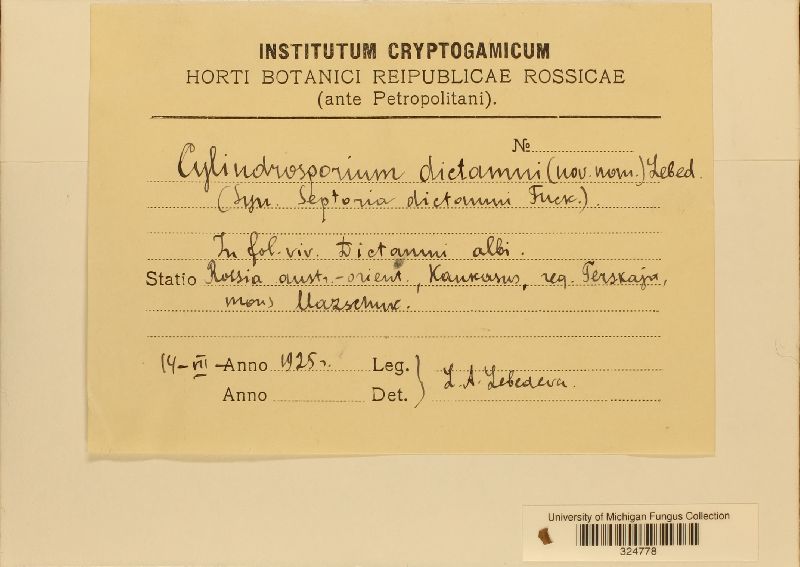 INSTITUTUM CRYPTOGAMICUM
HORTI BOTANICI REIPUBLICAE ROSSICAE
(ante Petropolitani).
№
Cylindrosporium dictamni (nov. nom.) Lebed.
(Syn. Septoria dictamni Fuck.)
In fol. viv. Dictamni albi.
Statio Rossia austr.-orient., Kaukasus, reg. Terskaja,
mons Mazschuk.
14-VII-Anno 1925 г. Leg.
Anno Det. L. A. Lebedeva.
University of Michigan Fungus Collection
324778